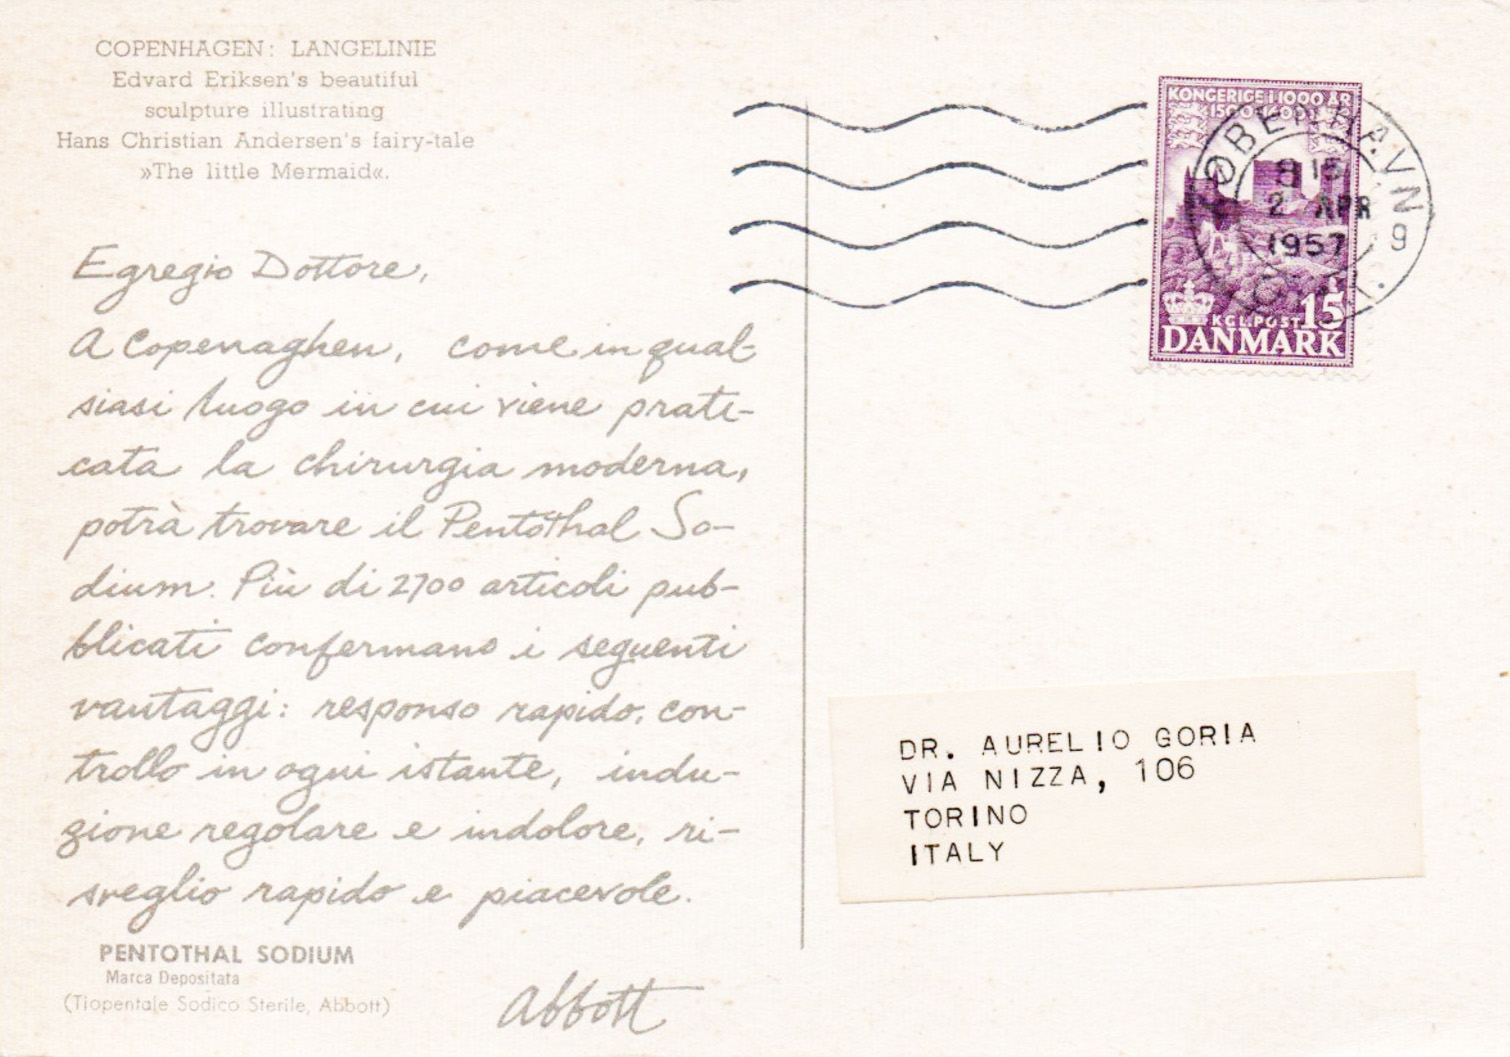 COPENHAGEN: LANGELINIE
Edvard Eriksen's beautiful
sculpture illustrating
Hans Christian Andersen's fairy-tale
»The little Mermaid«.
Egregio Dottore,
A Copenaghen, come in qual-
siasi luogo in cui viene prati-
cata la chirurgia moderna,
potrà trovare il Pentothal So-
dium. Più di 2700 articoli pub-
blicati confermano i seguenti
vantaggi: responso rapido, con-
trollo in ogni istante, indu-
zione regolare e indolore, ri-
sveglio rapido e piacevole.
PENTOTHAL SODIUM
Marca Depositata
(Tiopentale Sodico Sterile, Abbott)
Abbott
KONGERIGE I 1000 ÅR
KGL.POST 15
DANMARK
KØBENHAVN 9
8 15
2 APR
1957
DR. AURELIO GORIA
VIA NIZZA, 106
TORINO
ITALY